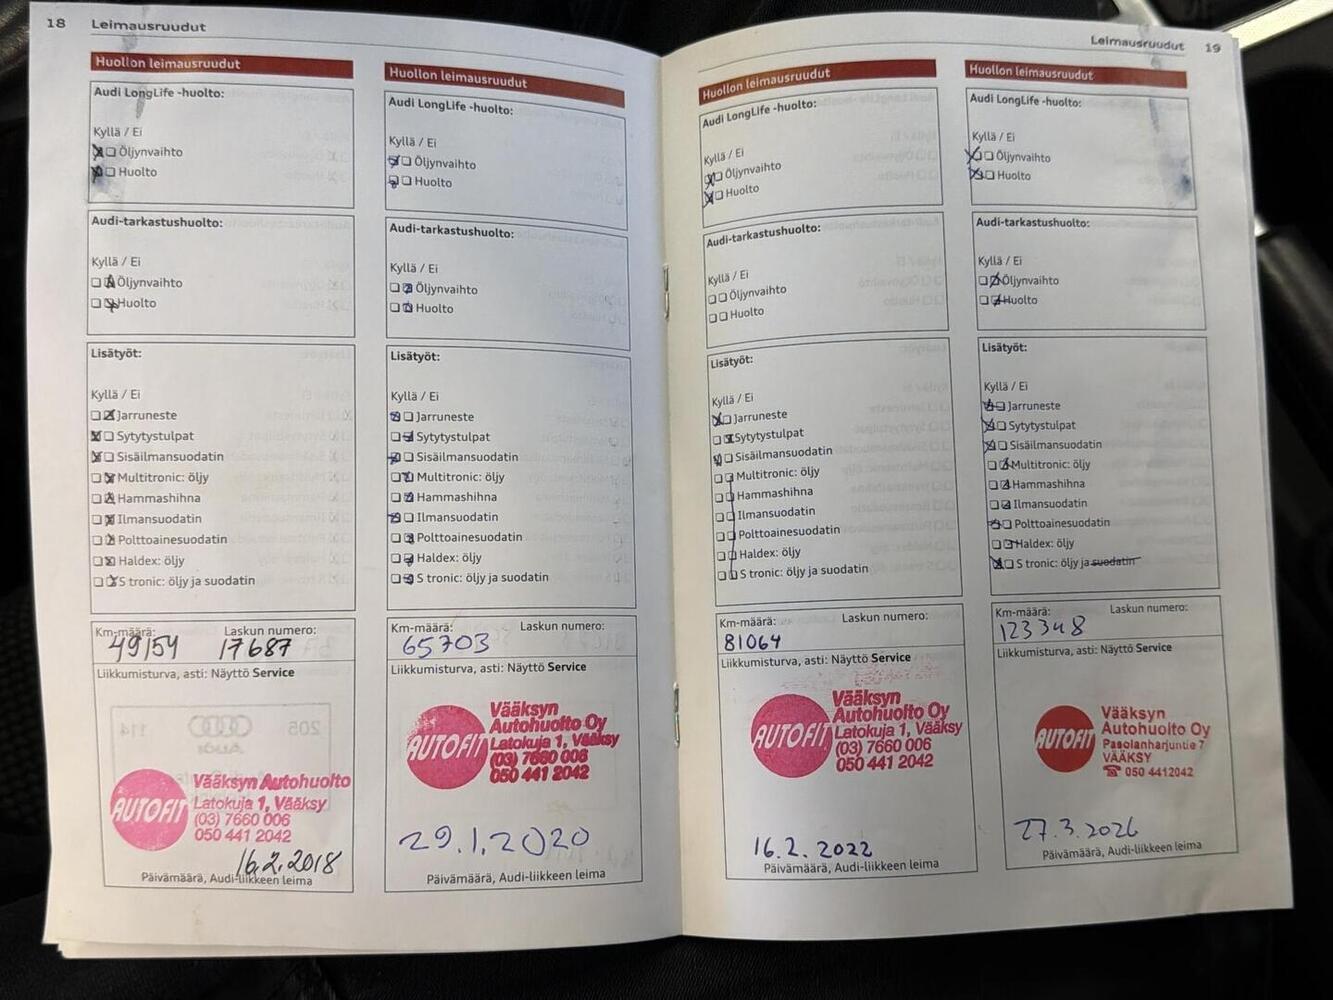 18 Leimausruudut
Huollon leimausruudut
Audi LongLife -huolto:
Kyllä / Ei
Öljynvaihto
Huolto
Audi-tarkastushuolto:
Kyllä / Ei
Öljynvaihto
Huolto
Lisätyöt:
Kyllä / Ei
Jarruneste
Sytytystulpat
Sisäilmansuodatin
Multitronic: öljy
Hammashihna
Ilmansuodatin
Polttoainesuodatin
Haldex: öljy
S tronic: öljy ja suodatin
Km-määrä: Laskun numero:
49154 17687
Liikkumisturva, asti: Näyttö Service
AUTOFIT
Vääksyn Autohuolto
Latokuja 1, Vääksy
(03) 7660 006
050 441 2042
16.2.2018
Päivämäärä, Audi-liikkeen leima
Huollon leimausruudut
Audi LongLife -huolto:
Kyllä / Ei
Öljynvaihto
Huolto
Audi-tarkastushuolto:
Kyllä / Ei
Öljynvaihto
Huolto
Lisätyöt:
Kyllä / Ei
Jarruneste
Sytytystulpat
Sisäilmansuodatin
Multitronic: öljy
Hammashihna
Ilmansuodatin
Polttoainesuodatin
Haldex: öljy
S tronic: öljy ja suodatin
Km-määrä: Laskun numero:
65703
Liikkumisturva, asti: Näyttö Service
AUTOFIT
Vääksyn
Autohuolto Oy
Latokuja 1, Vääksy
(03) 7660 006
050 441 2042
29.1.2020
Päivämäärä, Audi-liikkeen leima
Leimausruudut 19
Huollon leimausruudut
Audi LongLife -huolto:
Kyllä / Ei
Öljynvaihto
Huolto
Audi-tarkastushuolto:
Kyllä / Ei
Öljynvaihto
Huolto
Lisätyöt:
Kyllä / Ei
Jarruneste
Sytytystulpat
Sisäilmansuodatin
Multitronic: öljy
Hammashihna
Ilmansuodatin
Polttoainesuodatin
Haldex: öljy
S tronic: öljy ja suodatin
Km-määrä: Laskun numero:
81064
Liikkumisturva, asti: Näyttö Service
AUTOFIT
Vääksyn
Autohuolto Oy
Latokuja 1, Vääksy
(03) 7660 006
050 441 2042
16.2.2022
Päivämäärä, Audi-liikkeen leima
Huollon leimausruudut
Audi LongLife -huolto:
Kyllä / Ei
Öljynvaihto
Huolto
Audi-tarkastushuolto:
Kyllä / Ei
Öljynvaihto
Huolto
Lisätyöt:
Kyllä / Ei
Jarruneste
Sytytystulpat
Sisäilmansuodatin
Multitronic: öljy
Hammashihna
Ilmansuodatin
Polttoainesuodatin
Haldex: öljy
S tronic: öljy ja suodatin
Km-määrä: Laskun numero:
123348
Liikkumisturva, asti: Näyttö Service
AUTOFIT
Vääksyn
Autohuolto Oy
Pasolanharjuntie 7
VÄÄKSY
☎ 050 4412042
27.3.2026
Päivämäärä, Audi-liikkeen leima